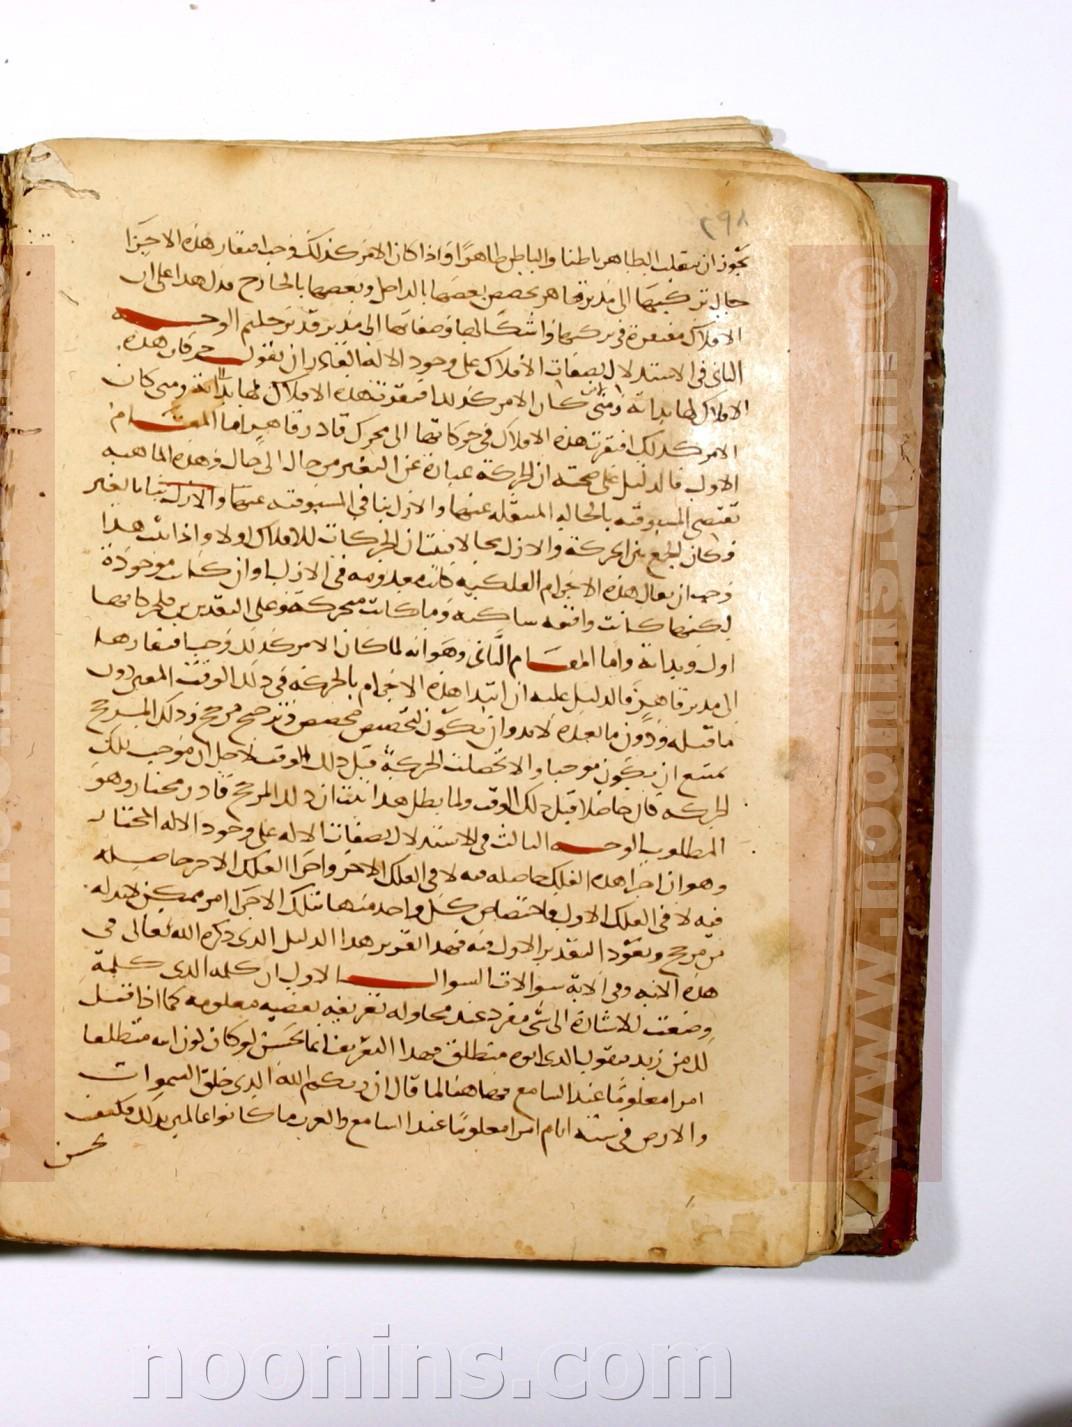 ٢٩٨
يجوز ان ينقلب الظاهر باطنا والباطن ظاهرا واذا كان الامر كذلك وجب افتقار هذه الاجزا
حال تركيبها الى مدبر قاهر يخصص بعضها بالداخل وبعضها بالخارج فدل هذا على ان
الافلاك مفتقرة في تركيبها واشكالها وصفاتها الى مدبر قدير حكيم الوجه
الثاني في الاستدلال بصفات الافلاك على وجود الاله القادر ان نقول حركات هذه
الافلاك لها بداية ومتى كان الامر كذلك افتقرت هذه الافلاك لها بداية ومتى كان
الامر كذلك افتقرت هذه الافلاك في حركاتها الى محرك قادر قاهر اما المقام
الاول فالدليل على صحته ان الحركة عبارة عن التغير من حال الى حال وهذه الماهية
تقتضي المسبوقية بالحالة المنتقلة عنها والازل ينافي المسبوقية عنها والازل ينافي بالغير
فكان الجمع بين الحركة والازل محالا فثبت ان للحركات للافلاك اولا واذا ثبت هذا
وجب ان يقال هذه الاجرام الفلكية كانت معدومة في الازل او ان كانت موجودة
لكنها كانت واقفة ساكنة وما كانت متحركة وعلى التقديرين فلحركاتها
اول وبداية واما المقام الثاني وهو انه لما كان الامر كذلك وجب افتقارها
الى مدبر قاهر فالدليل عليه ان ابتدا هذه الاجرام بالحركة في ذلك الوقت المعين دون
ما قبله ودون ما بعده لا بد وان يكون لتخصيص مخصص وترجيح مرجح وذلك المرجح
يمتنع ان يكون موجبا والا لحصلت الحركة قبل ذلك الوقت لاجل ان موجب تلك
الحركة كان حاصلا قبل ذلك الوقت ولما بطل هذا ثبت ان ذلك المرجح قادر مختار وهو
المطلوب الوجه الثالث في الاستدلال بصفات الاله على وجود الاله المختار
وهو ان اجزا هذه الفلك حاصلة فيه لا في الفلك الاخر واجزا الفلك الاخر حاصلة
فيه لا في الفلك الاول فاختصاص كل واحد منها بتلك الاجزا امر ممكن لا بد له
من مرجح ويعود التقدير الاول فيه فهذا تقرير هذا الدليل الذي ذكره الله تعالى في
هذه الاية وفي الاية سوالات السوال الاول ان كلمة الذي كلمة
وضعت للاشارة الى شي مفرد عند محاولة تعريفه بقضية معلومة كما اذا قيل
لك من زيد فتقول الذي ابوه منطلق فهذا التعريف انما يحسن لو كان كون ابيه منطلقا
امرا معلوما عند السامع فهاهنا لما قال ان ربكم الله الذي خلق السموات
والارض في ستة ايام امرا معلوما عند السامع والعرب ما كانوا عالمين بذلك فكيف
يحسن
© noonins.com
WWW.noonins.com
noonins.com